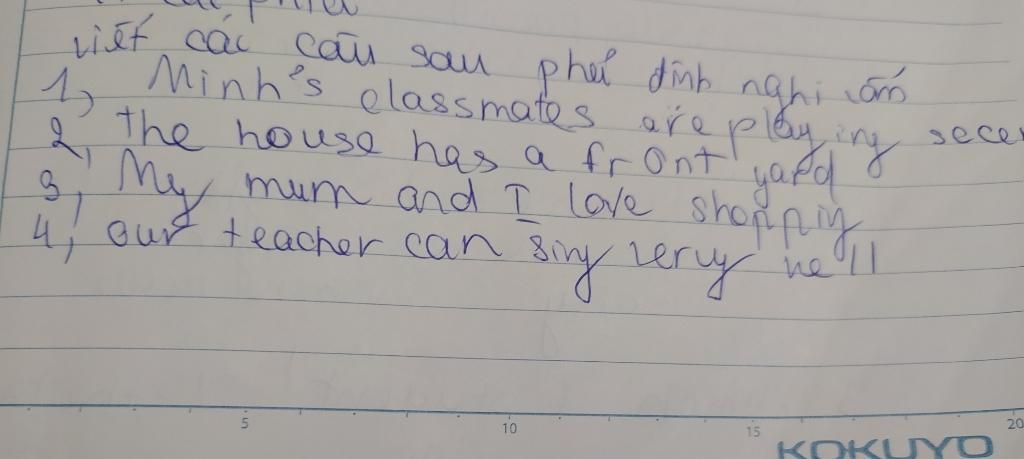 viết các câu sau phủ định nghi vấn
1, Minh's classmates are playing secer
2, the house has a front yard
3, My mum and I love shoppig
4, our teacher can sing very well
5 10 15 20
KOKUYO